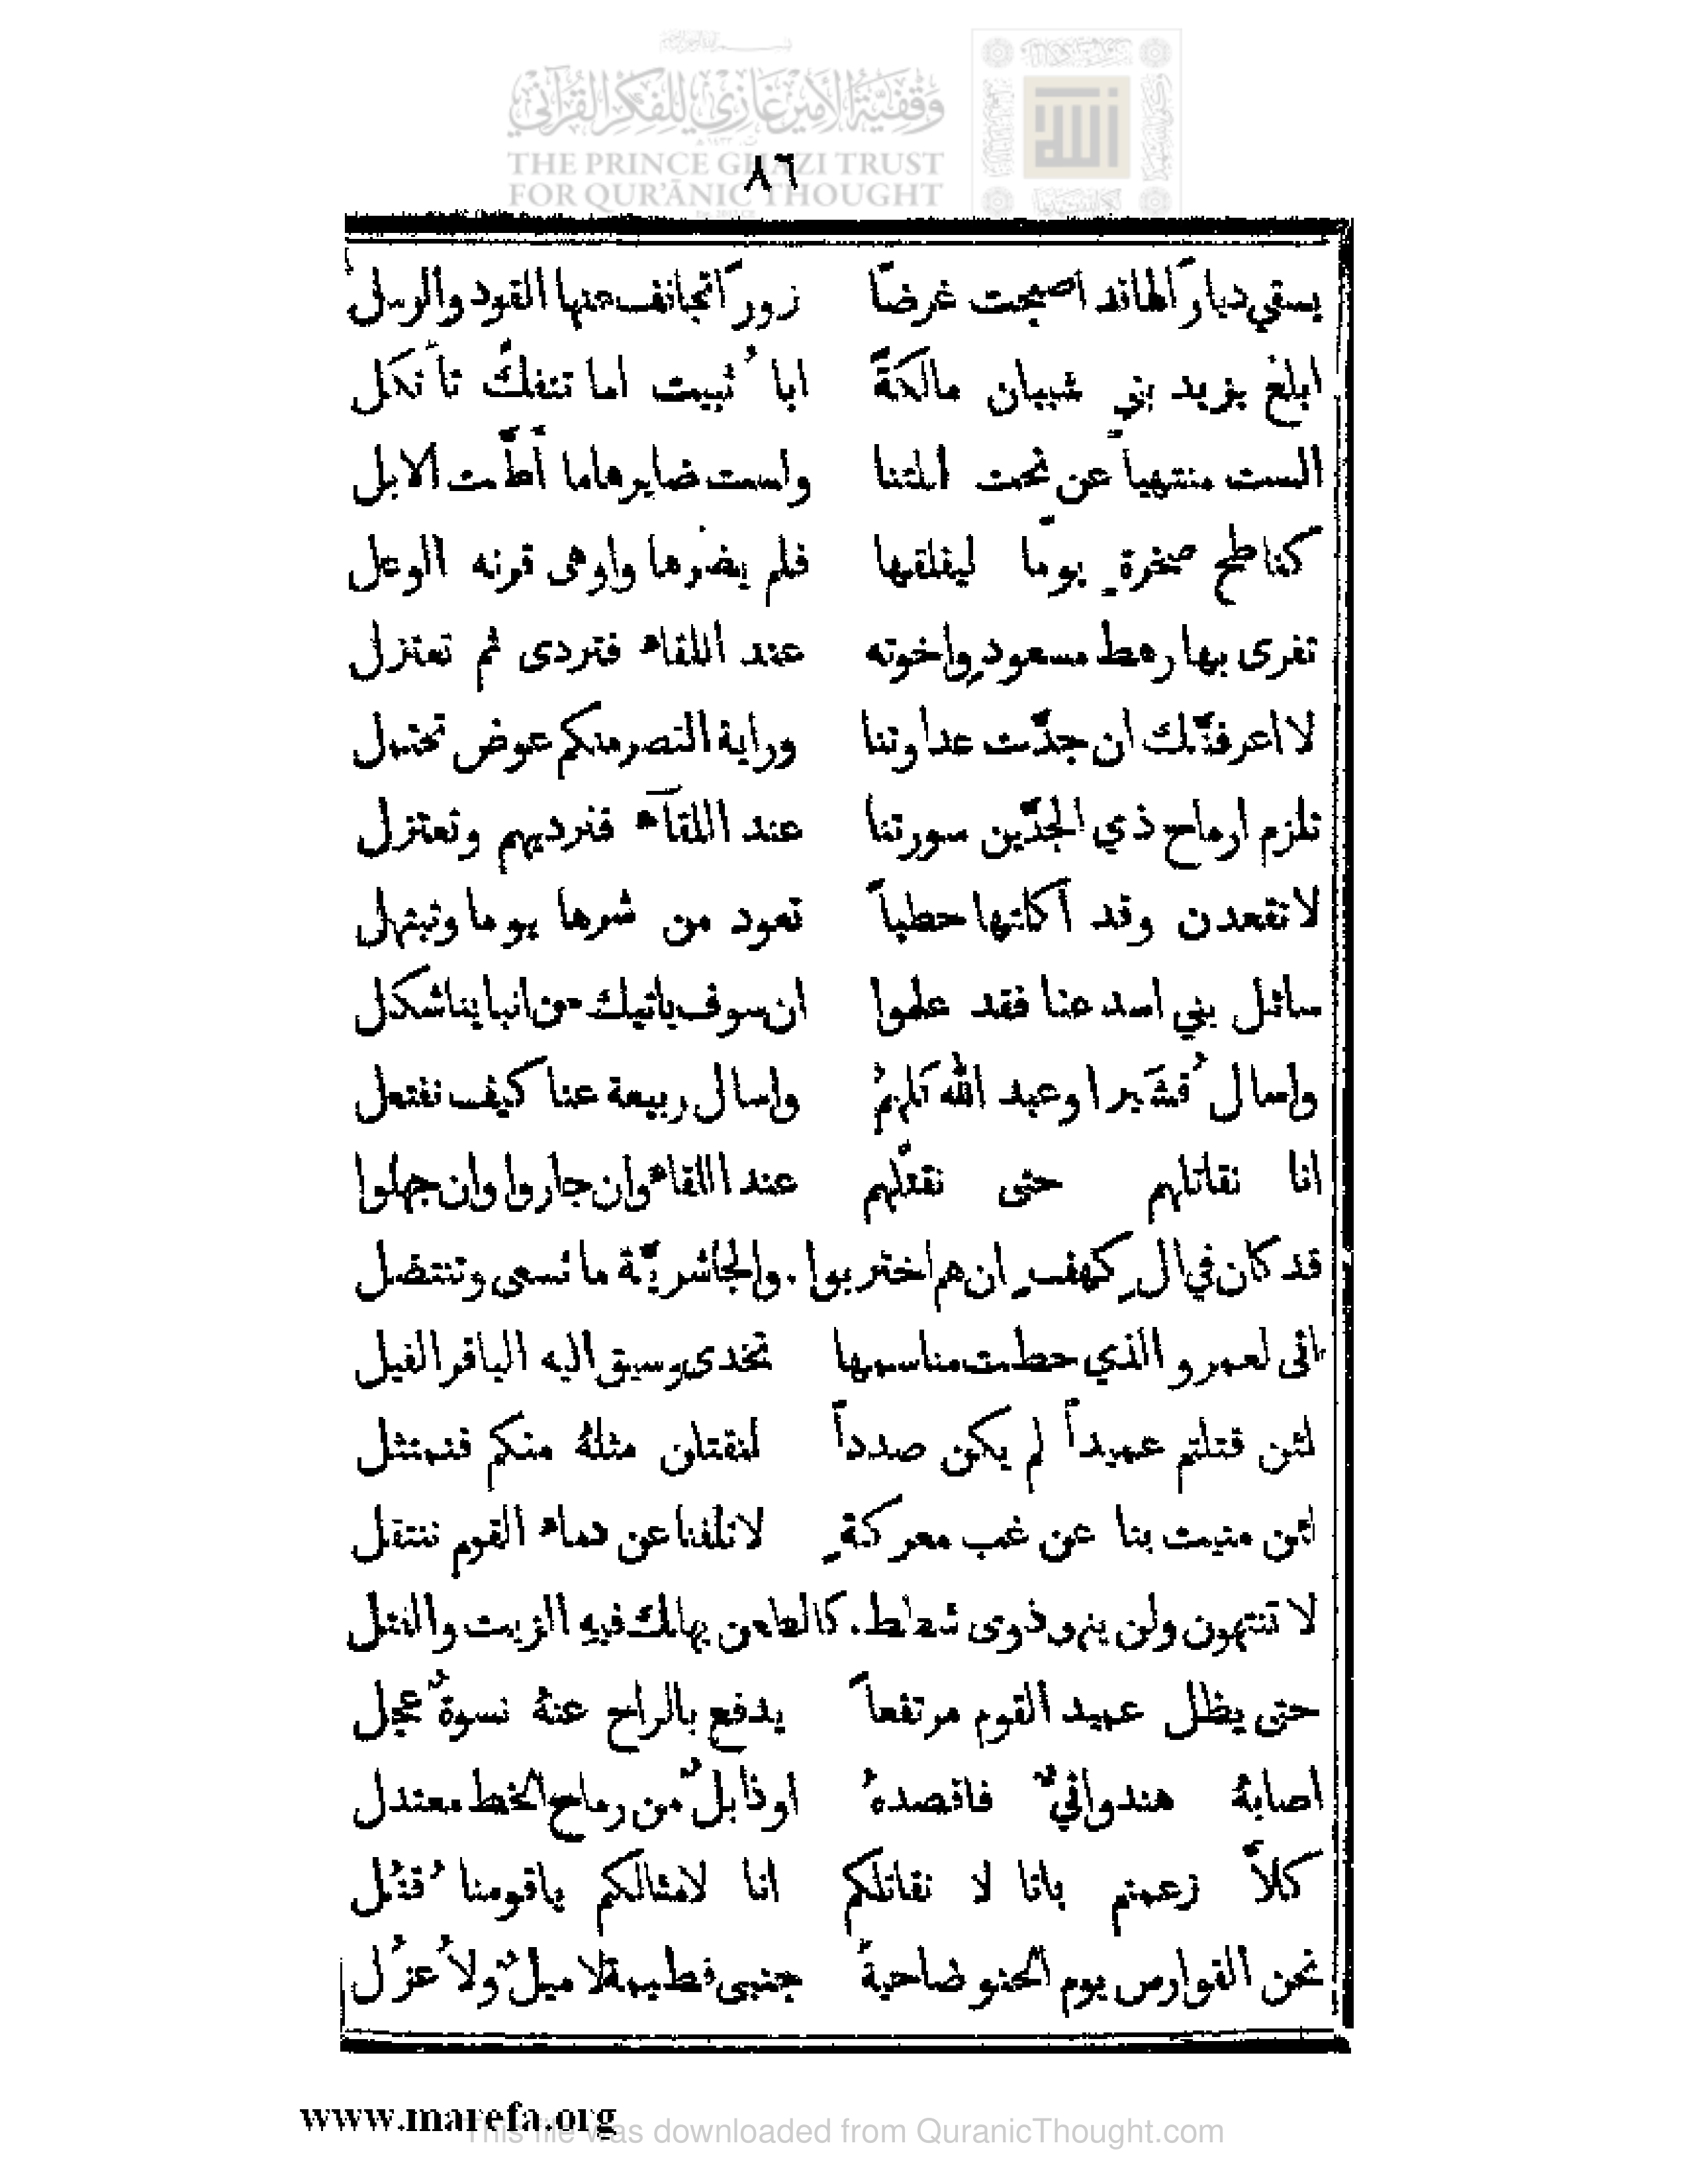 وَقْفِيَّةُ الْأَمِيرِ غَازِي لِلْفِكْرِ الْقُرْآنِيِّ
THE PRINCE GHAZI TRUST
FOR QUR'ĀNIC THOUGHT
٨٦
يسقي ديارًا لها قد اصبحت غرضًا زورًا تجانف عنها القود والرسل
ابلغ يزيد بني شيبان مالكةً ابا ثُبيت اما تنفكّ تأتكل
الست منتهياً عن نحت اثلتنا ولست ضايرها ما أطّت الابل
كناطح صخرةٍ يومًا ليفلقها فلم يضرها واوهى قرنه الوعل
تغرى بها رهط مسعودٍ واخوته عند اللقاء فتردى ثم تعتزل
لا اعرفنّك ان جدّت عداوتنا وراية النصر منكم عوض تحتمل
تلزم ارماح ذي الجدّين سورتنا عند اللقآء فترديهم وتعتزل
لا تقعدن وقد أكلتها حطباً تعود من شرها يوما وتبتهل
سائل بني اسد عنا فقد علموا ان سوف ياتيك من انباينا شكل
واسال قُشَيرا وعبد الله كَلهمُ واسال ربيعة عنا كيف نفتعل
انا نقاتلهم حتى نقتّلهم عند اللقاء وان جاروا وان جهلوا
قد كان في الِ كهفٍ ان هم اختربوا . والجاشريّة ما تسعى وتنتضل
اني لعمرو الذي حطت مناسمها تخدى وسيق اليه الباقر الغيل
لئن قتلتم عميداً لم يكن صدداً لنقتلن مثلهُ منكم فنمتثل
لئن منيت بنا عن غب معركةٍ لا تلفنا عن دماء القوم ننتفل
لا تنتهون ولن ينهو ذوى شطط . كالطعن يهالك فيهِ الزيت والفتل
حتى يظل عميد القوم مرتفعاً يدفع بالراح عنهُ نسوةٌ عجل
اصابهُ هندوانيٌ فاقصدهُ اوذابلٌ من رماح الخط معتدل
كلاّ زعمتم بانا لا نقاتلكم انا لامثالكم ياقومنا قُتُل
نحن الفوارس يوم الحنو ضاحيةً جنبى فطيمة لا ميلٌ ولا عزُل
www.marefa.org
This file was downloaded from QuranicThought.com